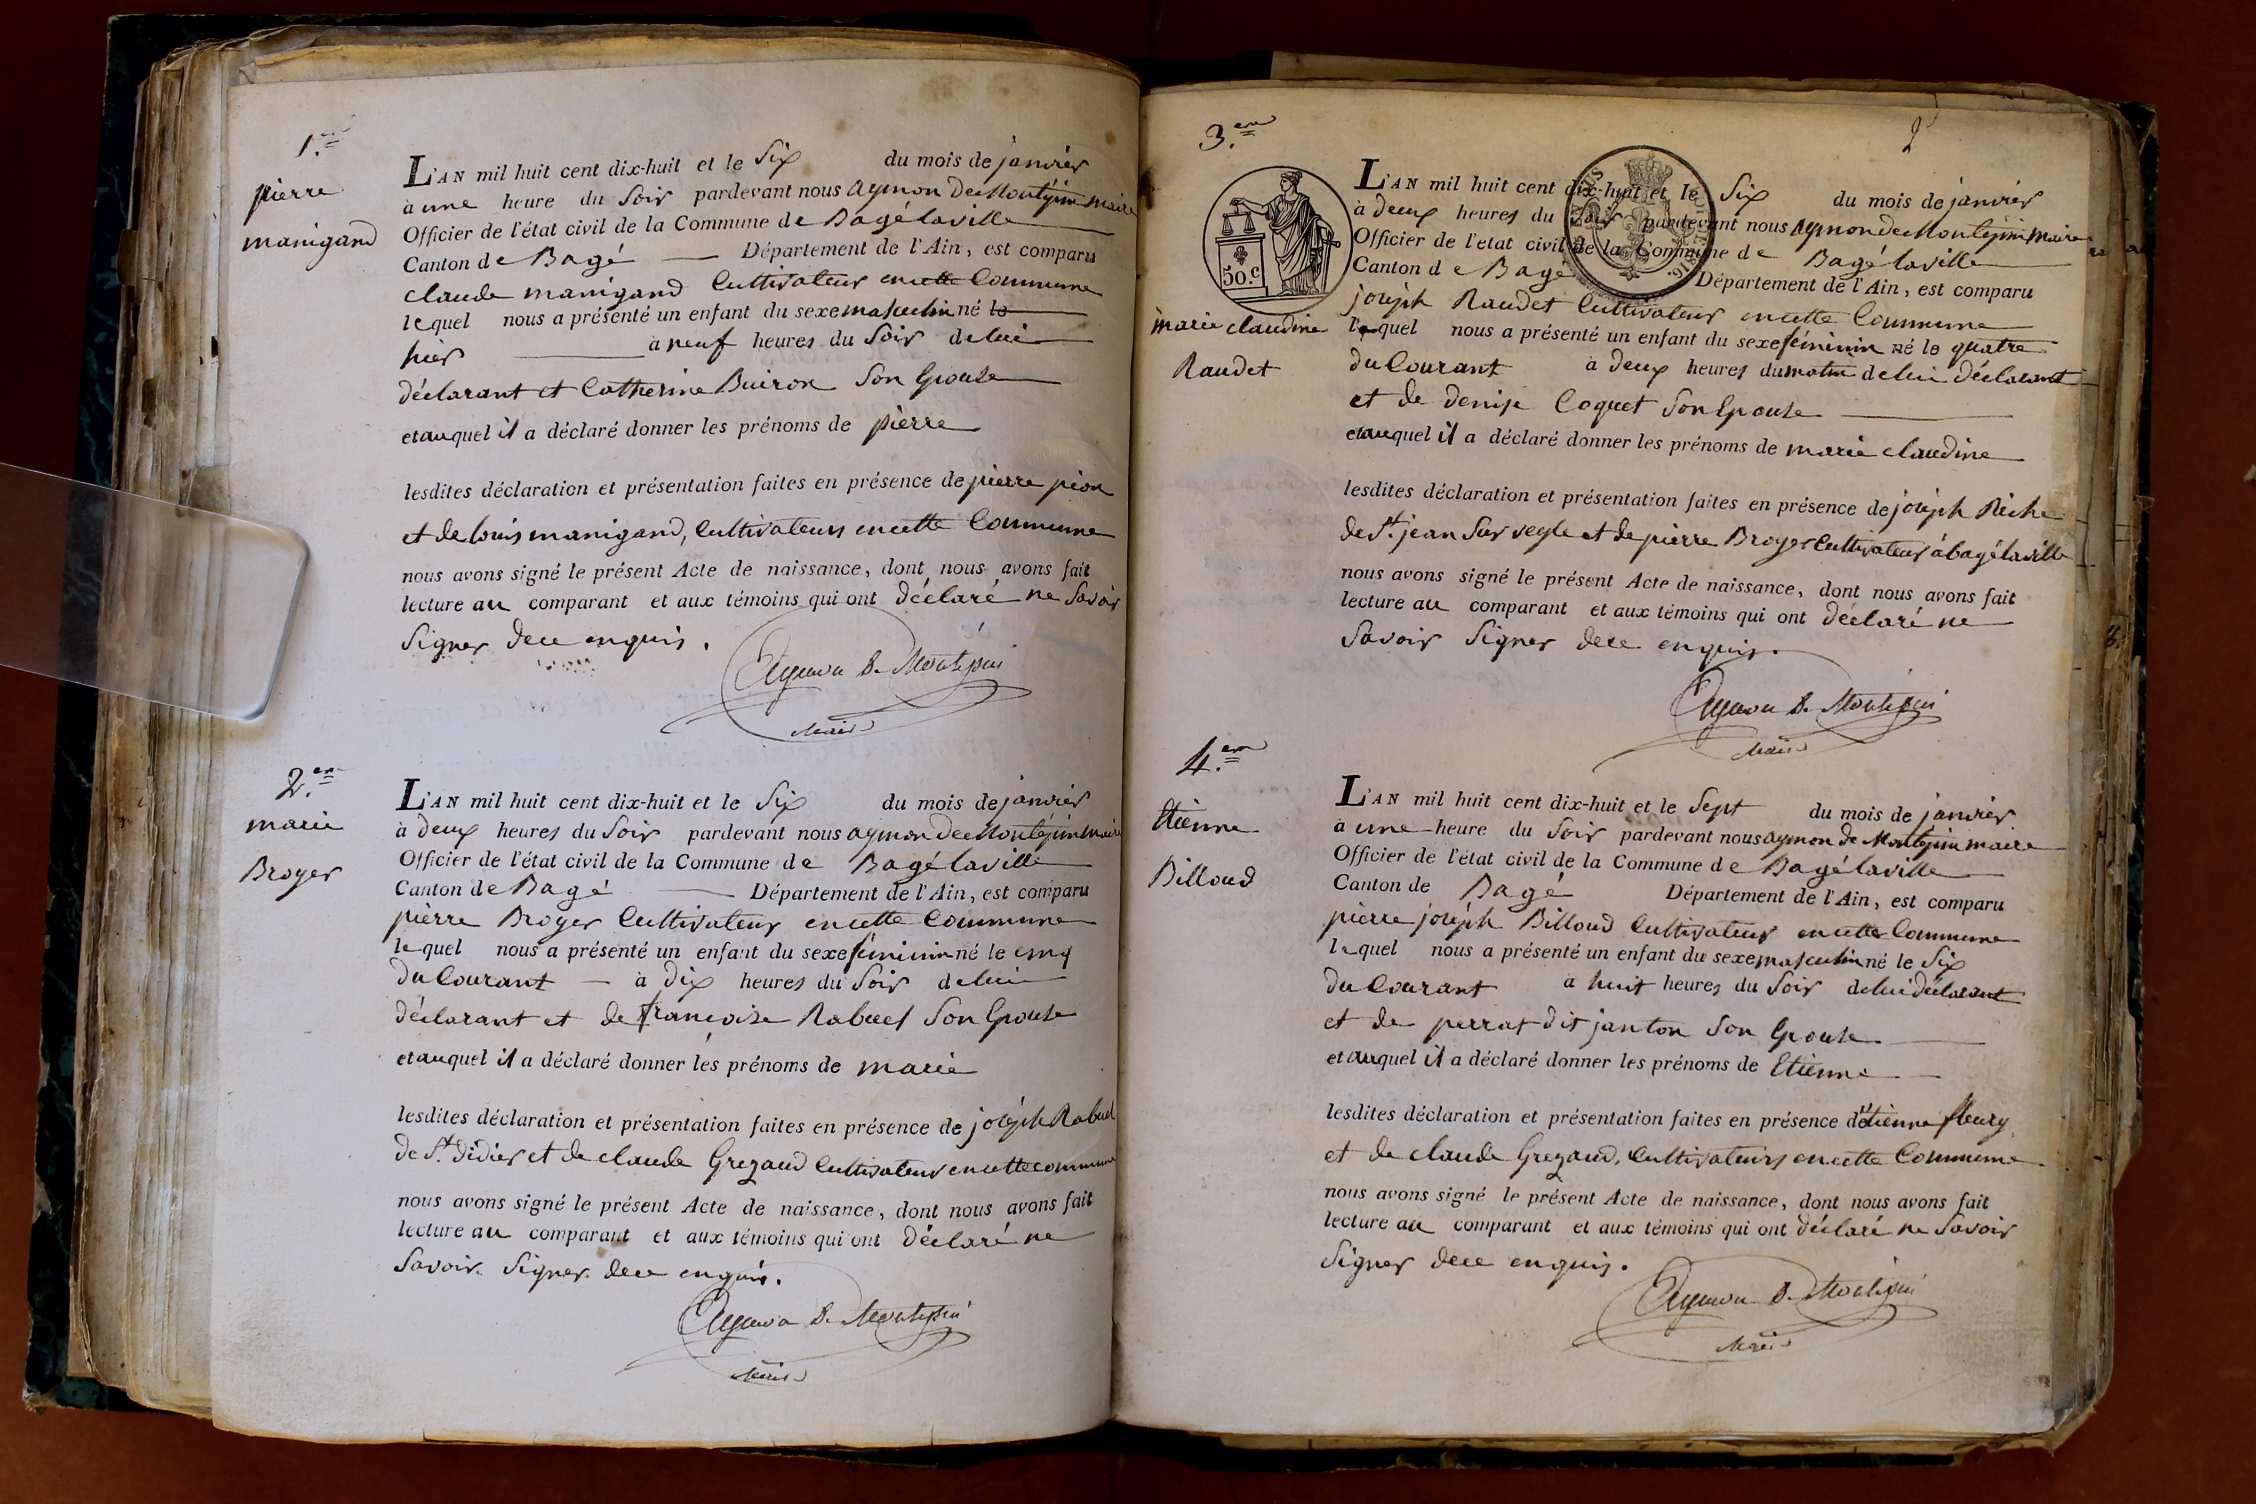 1.ere
pierre
manigand
L'AN mil huit cent dix-huit et le Six du mois de janvier
à une heure du Soir pardevant nous aymon De Montépin maire
Officier de l'état civil de la Commune de Bagé laville
Canton de Bagé Département de l'Ain, est comparu
claude manigand Cultivateur en cette Commune
lequel nous a présenté un enfant du sexe masculin né le
hier à neuf heures du Soir de lui
déclarant et Catherine Buiron Son Epouse
et auquel il a déclaré donner les prénoms de pierre
lesdites déclaration et présentation faites en présence de pierre pion
et de louis manigand, Cultivateurs en cette Commune
nous avons signé le présent Acte de naissance, dont nous avons fait
lecture au comparant et aux témoins qui ont déclaré ne Savoir
Signer de ce enquis.
Aymon De Montépin
Maire
2.em
marie
Broyer
L'AN mil huit cent dix-huit et le Six du mois de janvier
à deux heures du Soir pardevant nous aymon De Montépin maire
Officier de l'état civil de la Commune de Bagé laville
Canton de Bagé Département de l'Ain, est comparu
pierre Broyer Cultivateur en cette Commune
lequel nous a présenté un enfant du sexe féminin né le cinq
du Courant à dix heures du Soir de lui
déclarant et de françoise Rabuel Son Epouse
et auquel il a déclaré donner les prénoms de marie
lesdites déclaration et présentation faites en présence de joseph Rabuel
de St. didier et de claude Grezaud Cultivateur en cette commune
nous avons signé le présent Acte de naissance, dont nous avons fait
lecture au comparant et aux témoins qui ont déclaré ne
Savoir Signer de ce enquis.
Aymon De Montépin
Maire
2
3.em
50.c
marie claudine
Raudet
L'AN mil huit cent dix-huit et le Six du mois de janvier
à deux heures du Soir pardevant nous aymon De Montépin maire
Officier de l'etat civil de la Commune de Bagé laville
Canton de Bagé Département de l'Ain, est comparu
joseph Raudet Cultivateur en cette Commune
lequel nous a présenté un enfant du sexe féminin né le quatre
du Courant à deux heures du matin de lui déclarant
et de denise Coquet Son Epouse
et auquel il a déclaré donner les prénoms de marie claudine
lesdites déclaration et présentation faites en présence de joseph Riche
de St. jean Sur veyle et de pierre Broyer Cultivateur à bagé laville
nous avons signé le présent Acte de naissance, dont nous avons fait
lecture au comparant et aux témoins qui ont déclaré ne
Savoir Signer de ce enquis.
Aymon De Montépin
Maire
4.em
Etienne
Billoud
L'AN mil huit cent dix-huit et le Sept du mois de janvier
à une heure du Soir pardevant nous aymon de Montépin maire
Officier de l'état civil de la Commune de Bagé laville
Canton de Bagé Département de l'Ain, est comparu
pierre joseph Billoud Cultivateur en cette Commune
lequel nous a présenté un enfant du sexe masculin né le Six
du Courant à huit heures du Soir de lui déclarant
et de perrat dit janton Son Epouse
et auquel il a déclaré donner les prénoms de Etienne
lesdites déclaration et présentation faites en présence d'etienne fleury
et de claude Grezaud, Cultivateurs en cette Commune
nous avons signé le présent Acte de naissance, dont nous avons fait
lecture au comparant et aux témoins qui ont déclaré ne Savoir
Signer de ce enquis.
Aymon De Montépin
Maire